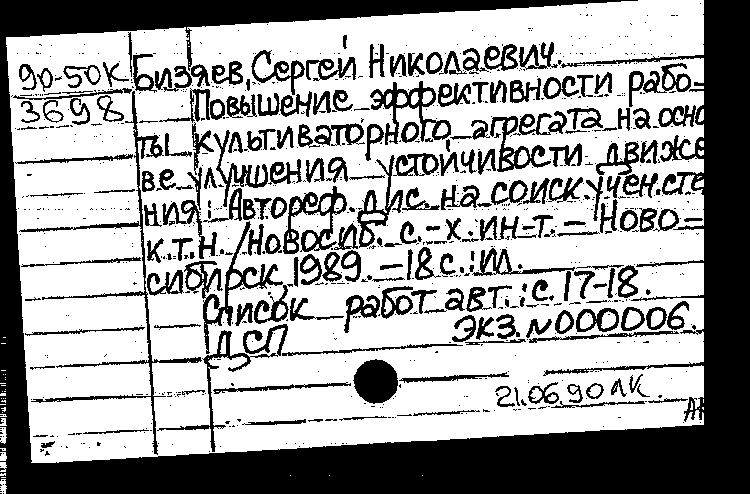 90-50К Бизяев, Сергей Николаевич.
3698 Повышение эффективности рабо-
ты культиваторного агрегата на осно
ве улучшения устойчивости движе
ния: Автореф. дис. на соиск. учен. сте
к.т.н. /Новосиб. с.-х. ин-т. – Ново-
сибирск, 1989. – 18 с.: ил.
Список работ авт.: с. 17-18.
ДСП Экз. N000006.
21.06.90 ЛК.
АК